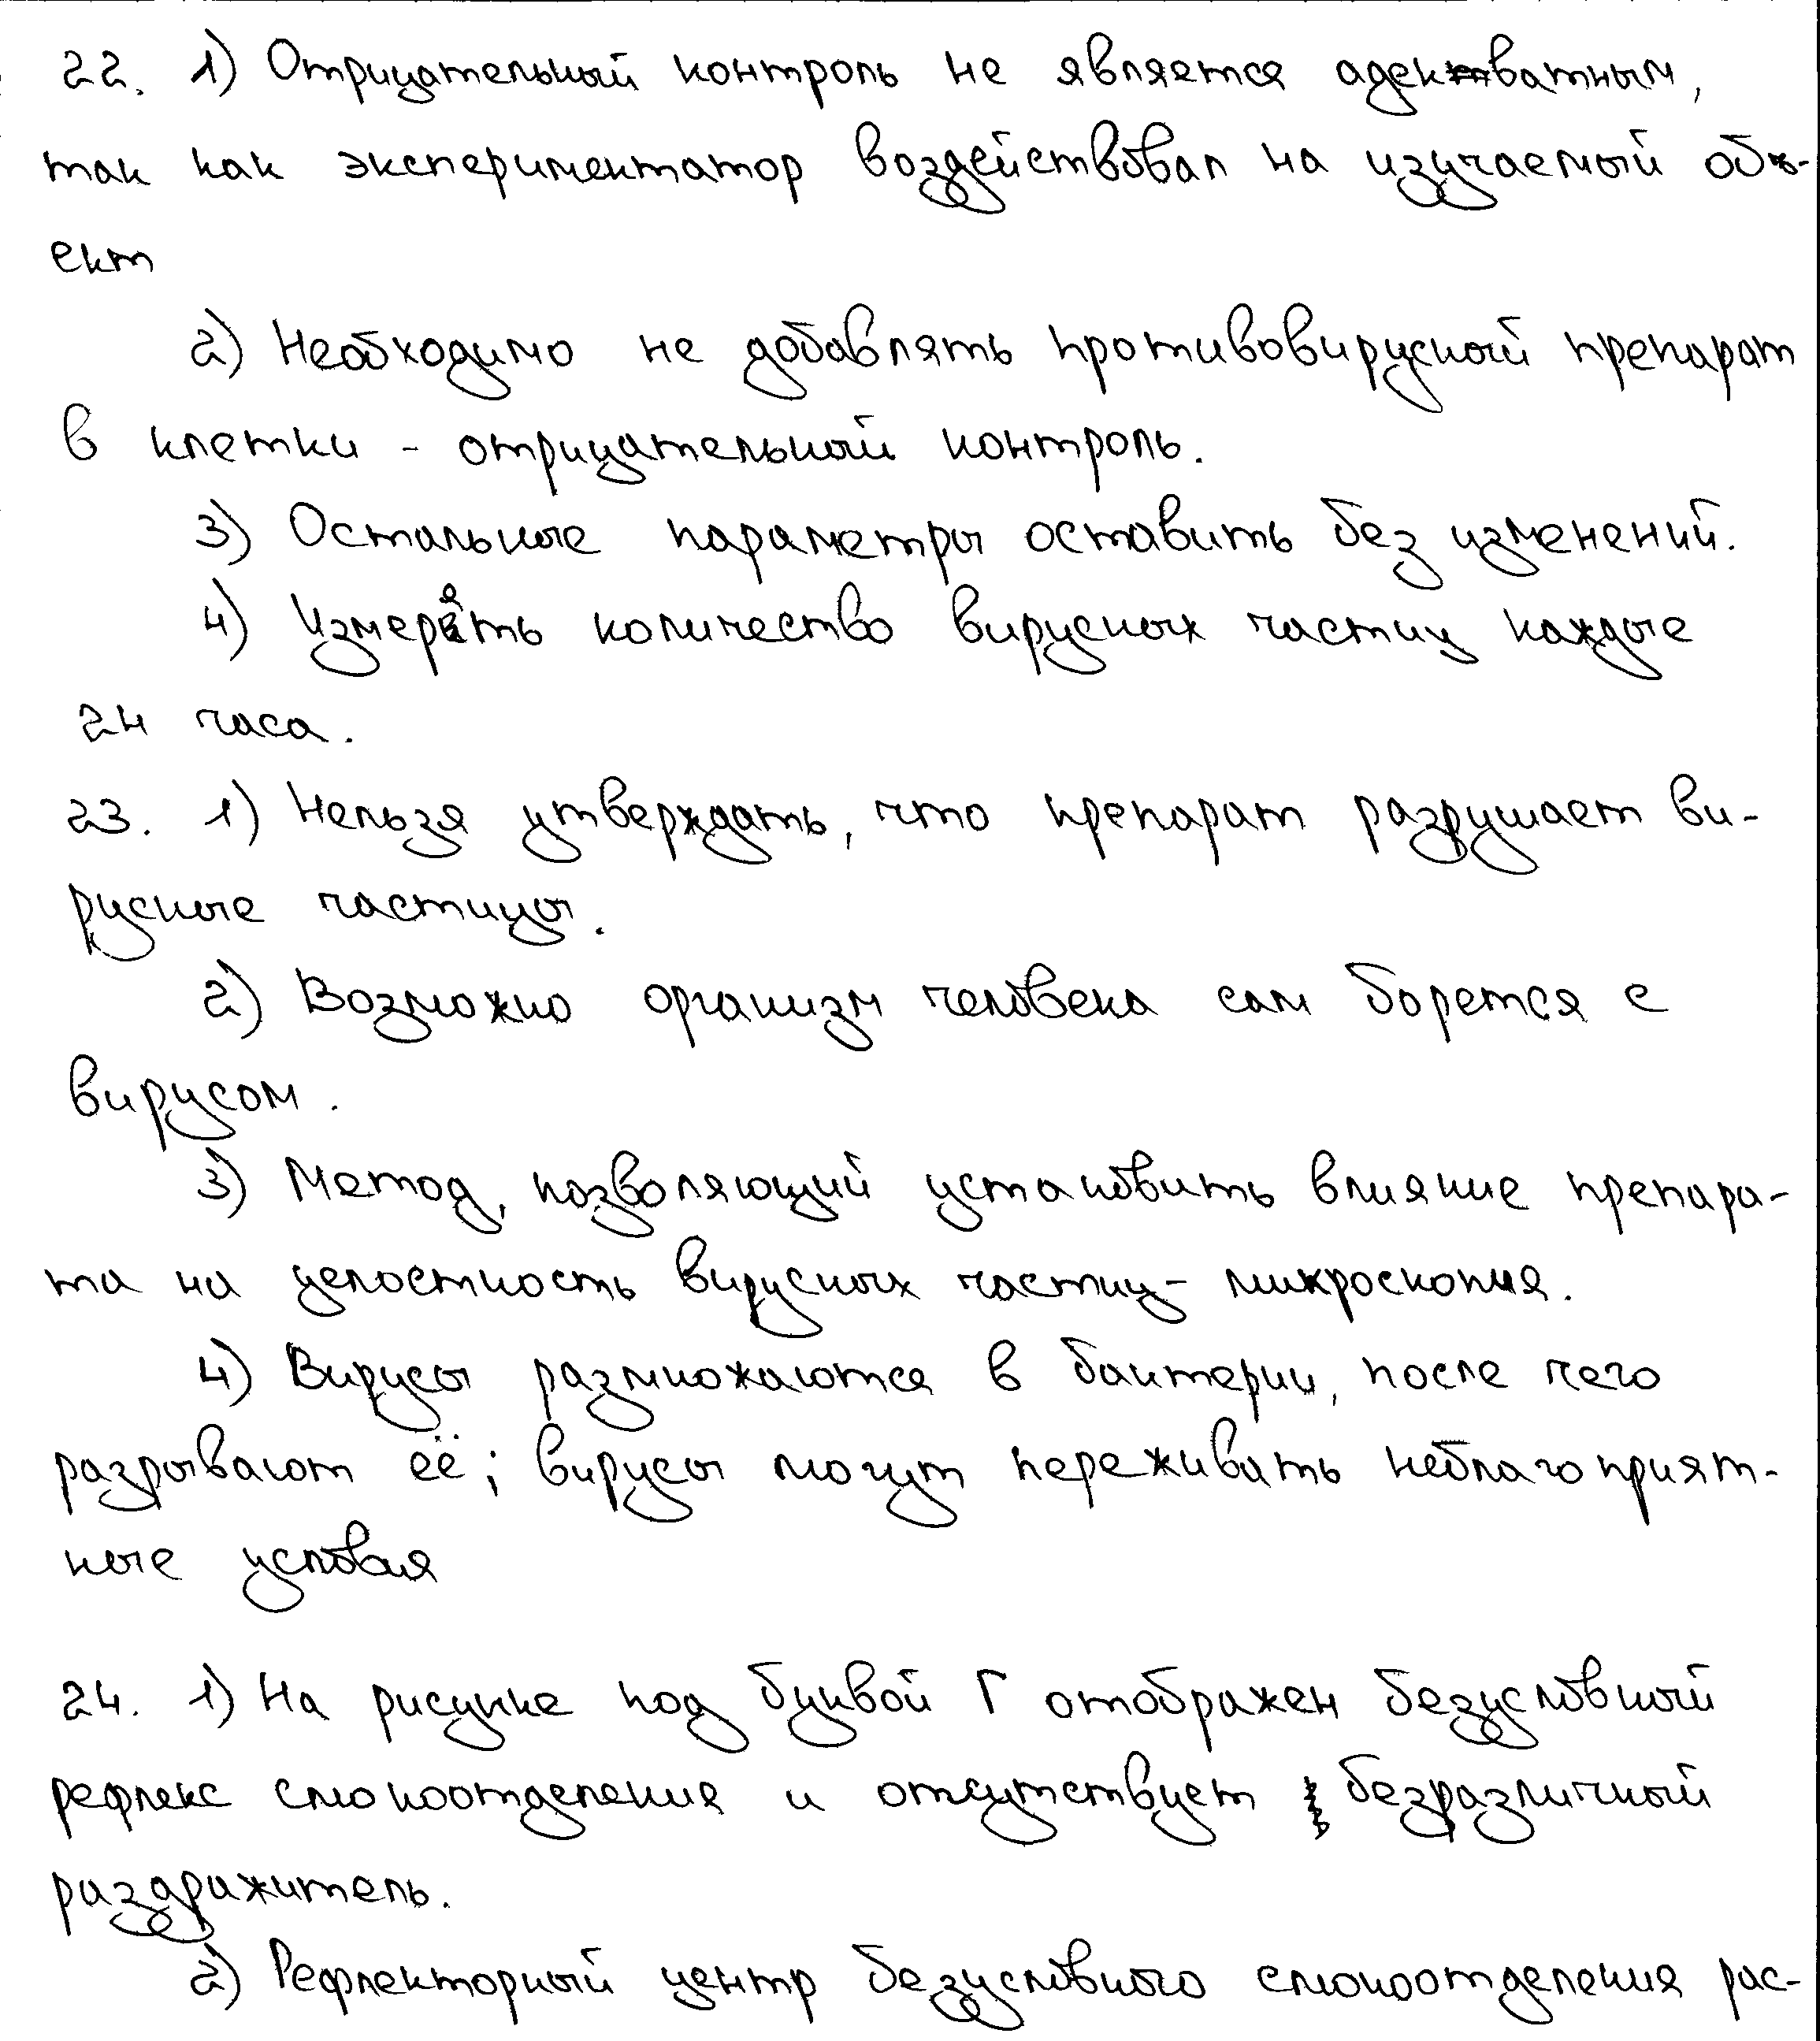 22. 1) Отрицательный контроль не является адекватным,
так как экспериментатор воздействовал на изучаемый объ-
ект
2) Необходимо не добавлять противовирусный препарат
в клетки - отрицательный контроль.
3) Остальные параметры оставить без изменений.
4) Измерять количество вирусных частиц каждые
24 часа.
23. 1) Нельзя утверждать, что препарат разрушает ви-
русные частицы.
2) Возможно организм человека сам борется с
вирусом.
3) Метод, позволяющий установить влияние препара-
та на целостность вирусных частиц - микроскопия.
4) Вирусы размножаются в бактерии, после чего
разрывают её; вирусы могут переживать неблагоприят-
ные условия
24. 1) На рисунке под буквой Г отображен безусловный
рефлекс слюноотделения и отсутствует безразличный
раздражитель.
2) Рефлекторный центр безусловного слюноотделения рас-